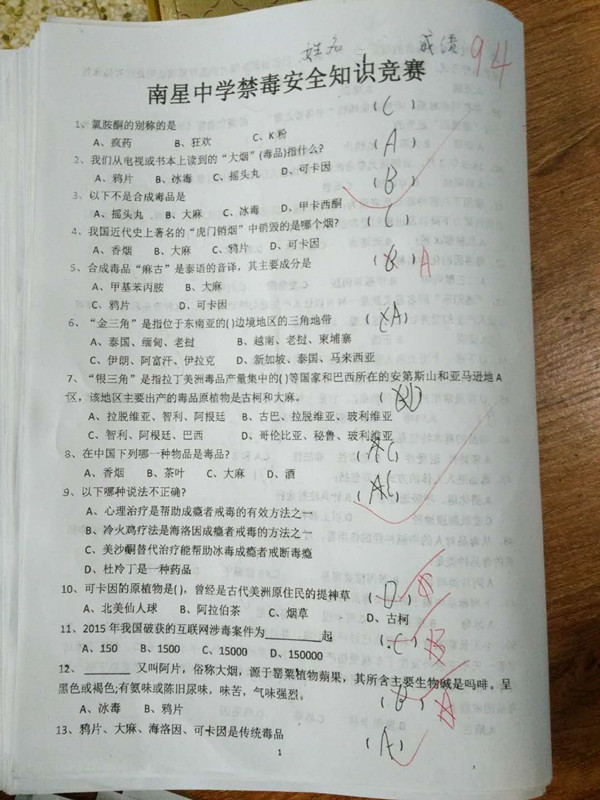 姓名 成绩 94
南星中学禁毒安全知识竞赛
1、氯胺酮的别称的是 (C)
A、疯药 B、狂欢 C、K粉
2、我们从电视或书本上读到的“大烟”(毒品)指什么? (A)
A、鸦片 B、冰毒 C、摇头丸 D、可卡因
3、以下不是合成毒品是 (B)
A、摇头丸 B、大麻 C、冰毒 D、甲卡西酮
4、我国近代史上著名的“虎门销烟”中销毁的是哪个烟? (C)
A、香烟 B、大麻 C、鸦片 D、可卡因
5、合成毒品“麻古”是泰语的音译，其主要成分是 A
A、甲基苯丙胺 B、大麻
C、鸦片 D、可卡因
6、“金三角”是指位于东南亚的()边境地区的三角地带 ( A)
A、泰国、缅甸、老挝 B、越南、老挝、柬埔寨
C、伊朗、阿富汗、伊拉克 D、新加坡、泰国、马来西亚
7、“银三角”是指拉丁美洲毒品产量集中的()等国家和巴西所在的安第斯山和亚马逊地A
区，该地区主要出产的毒品原植物是古柯和大麻。 ( D)
A、拉脱维亚、智利、阿根廷 B、古巴、拉脱维亚、玻利维亚
C、智利、阿根廷、巴西 D、哥伦比亚、秘鲁、玻利维亚
8、在中国下列哪一种物品是毒品? ( C)
A、香烟 B、茶叶 C、大麻 D、酒
9、以下哪种说法不正确? ( C)
A、心理治疗是帮助成瘾者戒毒的有效方法之一
B、冷火鸡疗法是海洛因成瘾者戒毒的方法之一
C、美沙酮替代治疗能帮助冰毒成瘾者戒断毒瘾
D、杜冷丁是一种药品
10、可卡因的原植物是()，曾经是古代美洲原住民的提神草 (D)
A、北美仙人球 B、阿拉伯茶 C、烟草 D、古柯
11、2015年我国破获的互联网涉毒案件为________起 (C) B
A、150 B、1500 C、15000 D、150000
12、________ 又叫阿片，俗称大烟，源于罂粟植物蒴果，其所含主要生物碱是吗啡。呈
黑色或褐色;有氨味或陈旧尿味，味苦，气味强烈。
A、冰毒 B、鸦片
13、鸦片、大麻、海洛因、可卡因是传统毒品 (A)
1